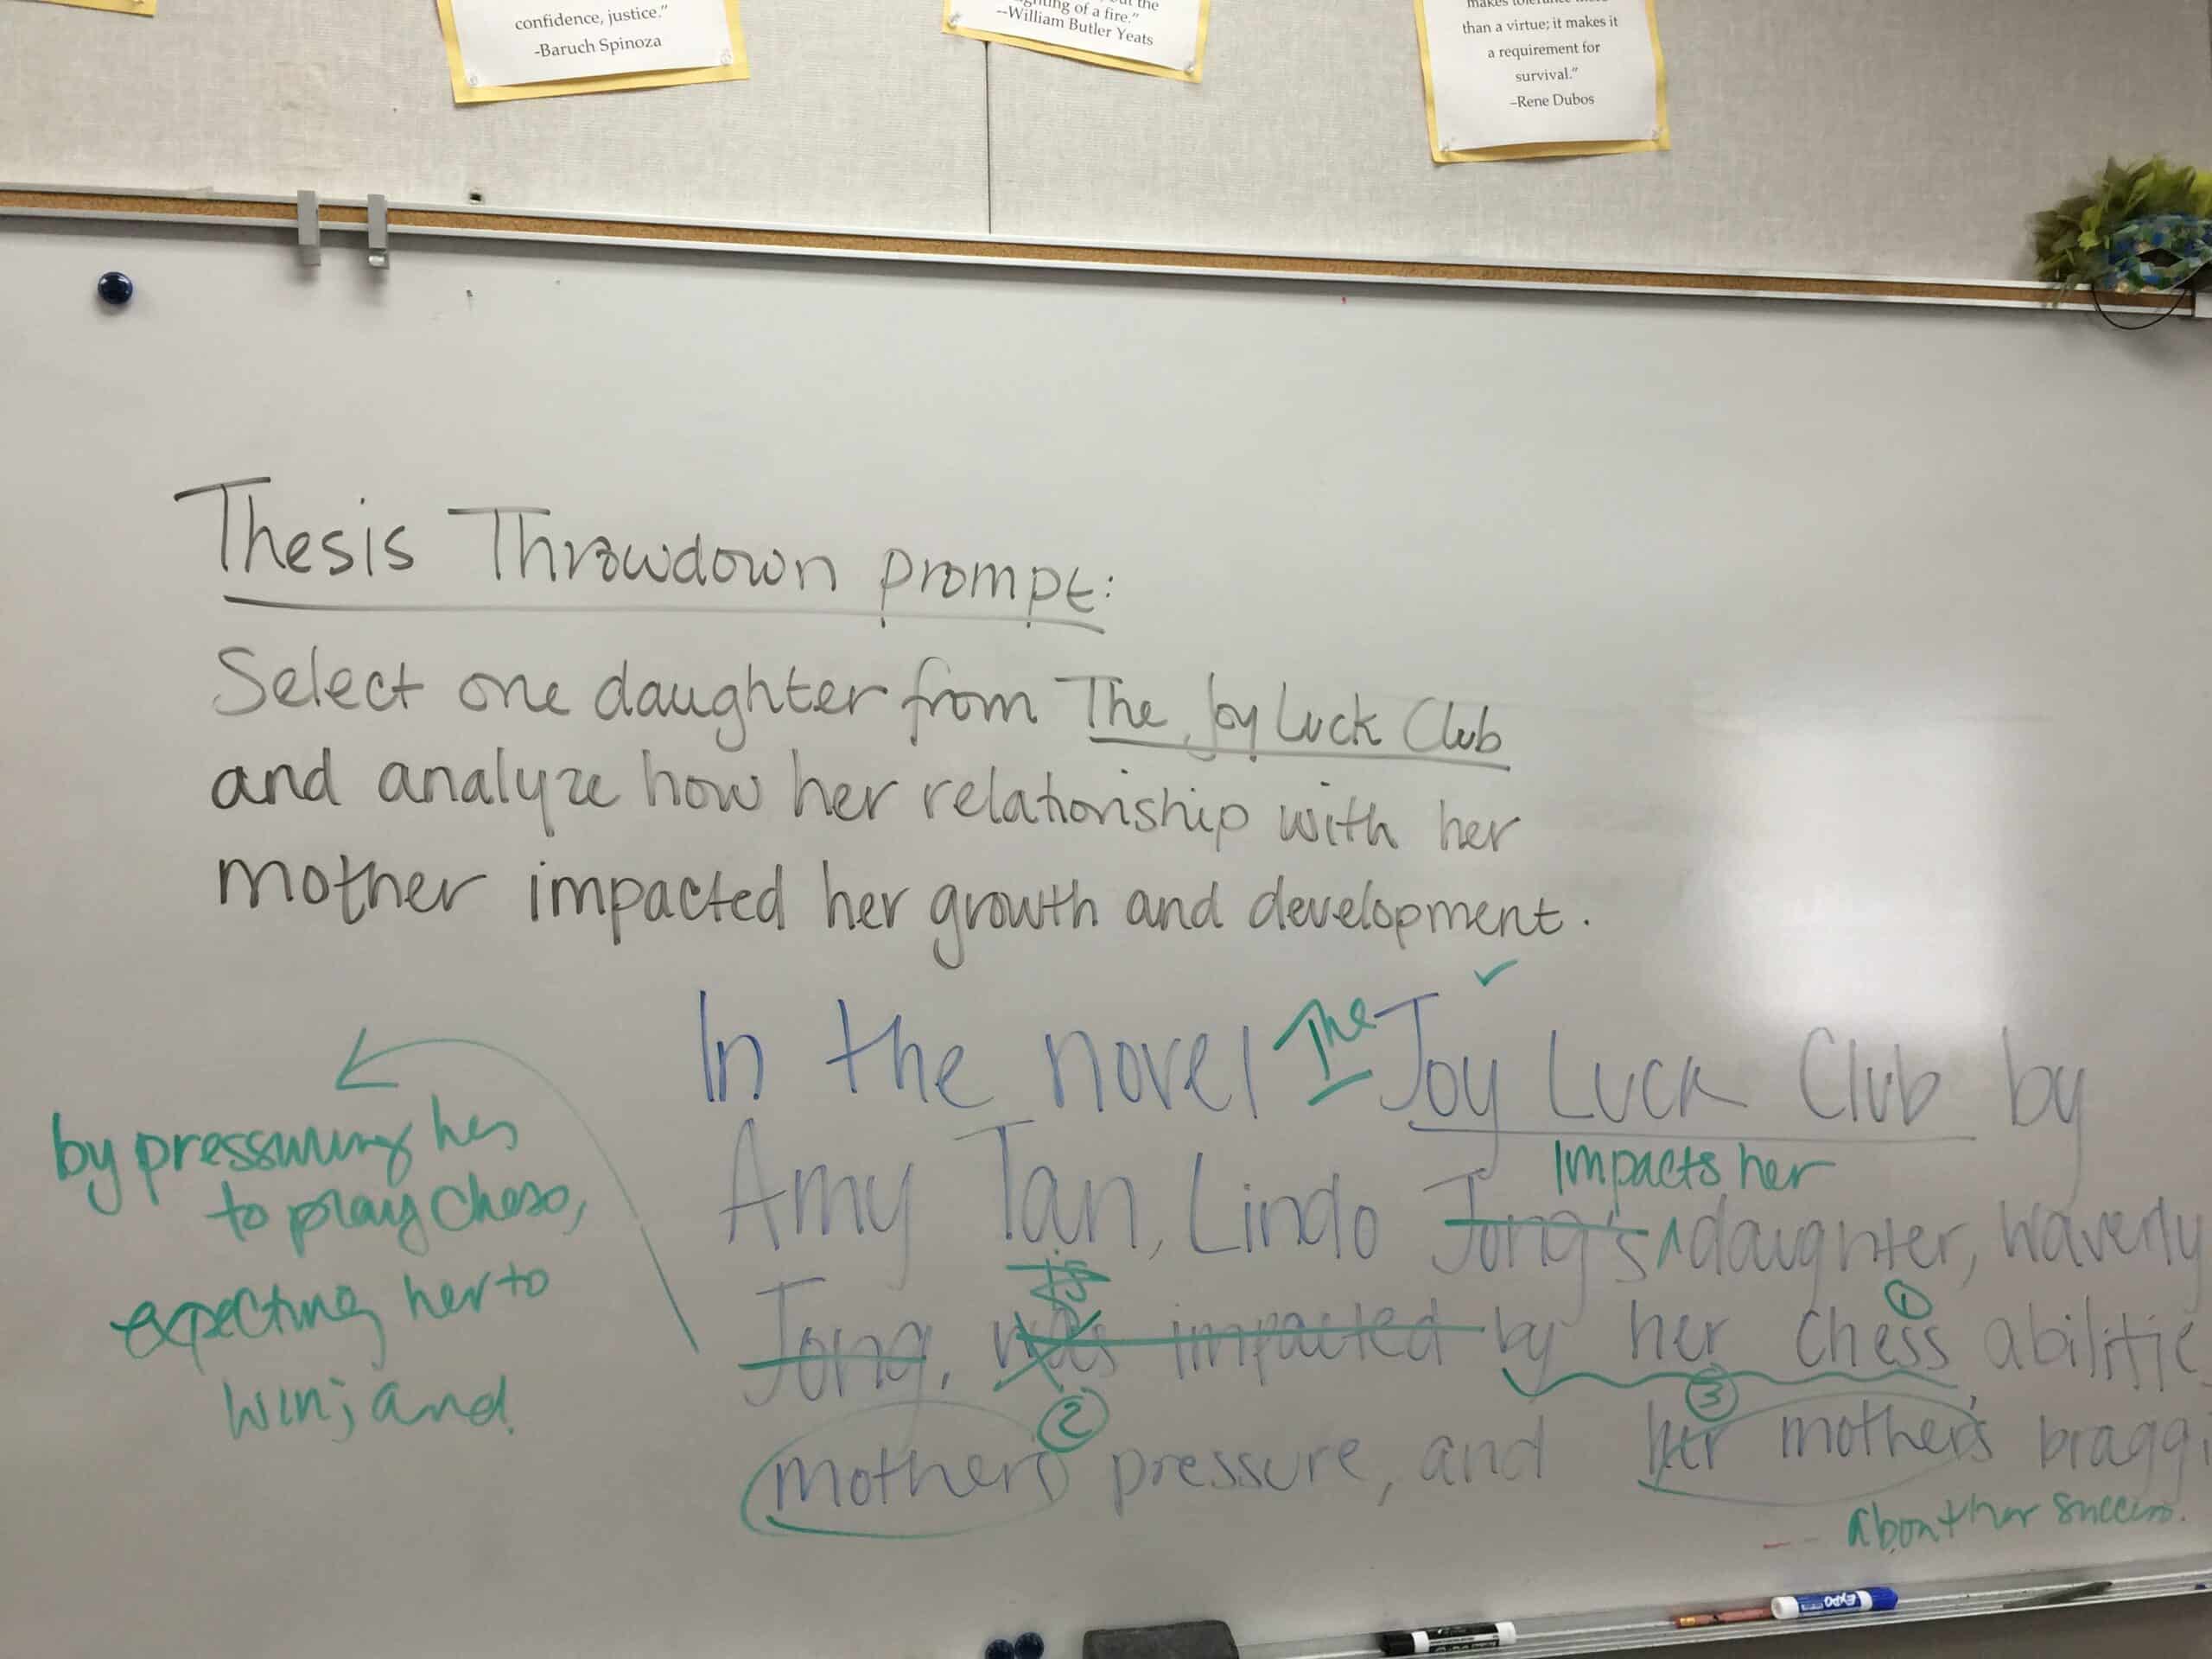 confidence, justice."
-Baruch Spinoza
of a fire."
--William Butler Yeats
than a virtue; it makes it
a requirement for
survival."
–Rene Dubos
Thesis Throwdown prompt:
Select one daughter from The Joy Luck Club
and analyze how her relationship with her
mother impacted her growth and development.
In the novel The Joy Luck Club by
impacts her
Amy Tan, Lindo Jong's daughter, Waverly
is
Jong, was impacted by her chess
1
2
3
mother's pressure, and her mother's
about her success.
by pressuring her
to play chess,
expecting her to
win; and
EXPO